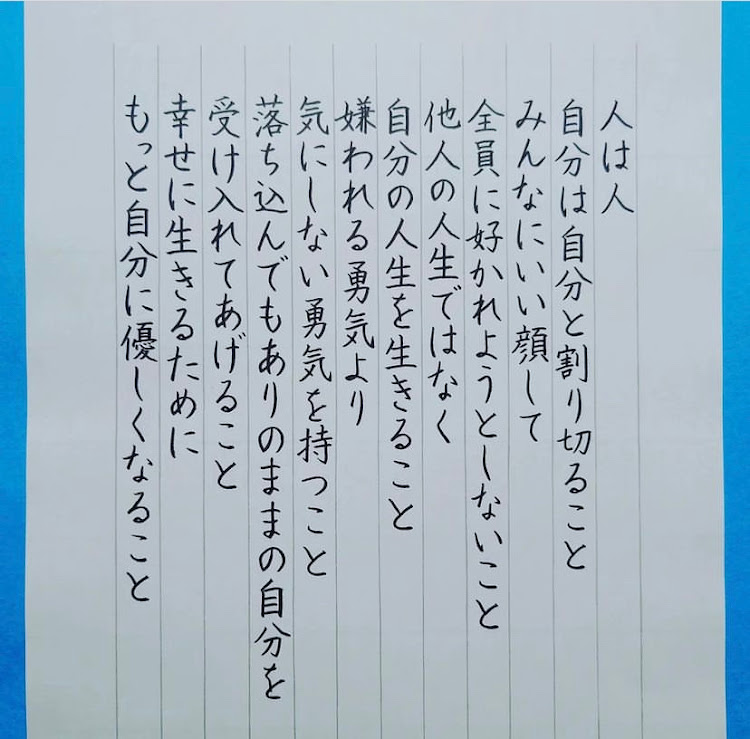 人は人
自分は自分と割り切ること
みんなにいい顔して
全員に好かれようとしないこと
他人の人生ではなく
自分の人生を生きること
嫌われる勇気より
気にしない勇気を持つこと
落ち込んでもありのままの自分を
受け入れてあげること
幸せに生きるために
もっと自分に優しくなること